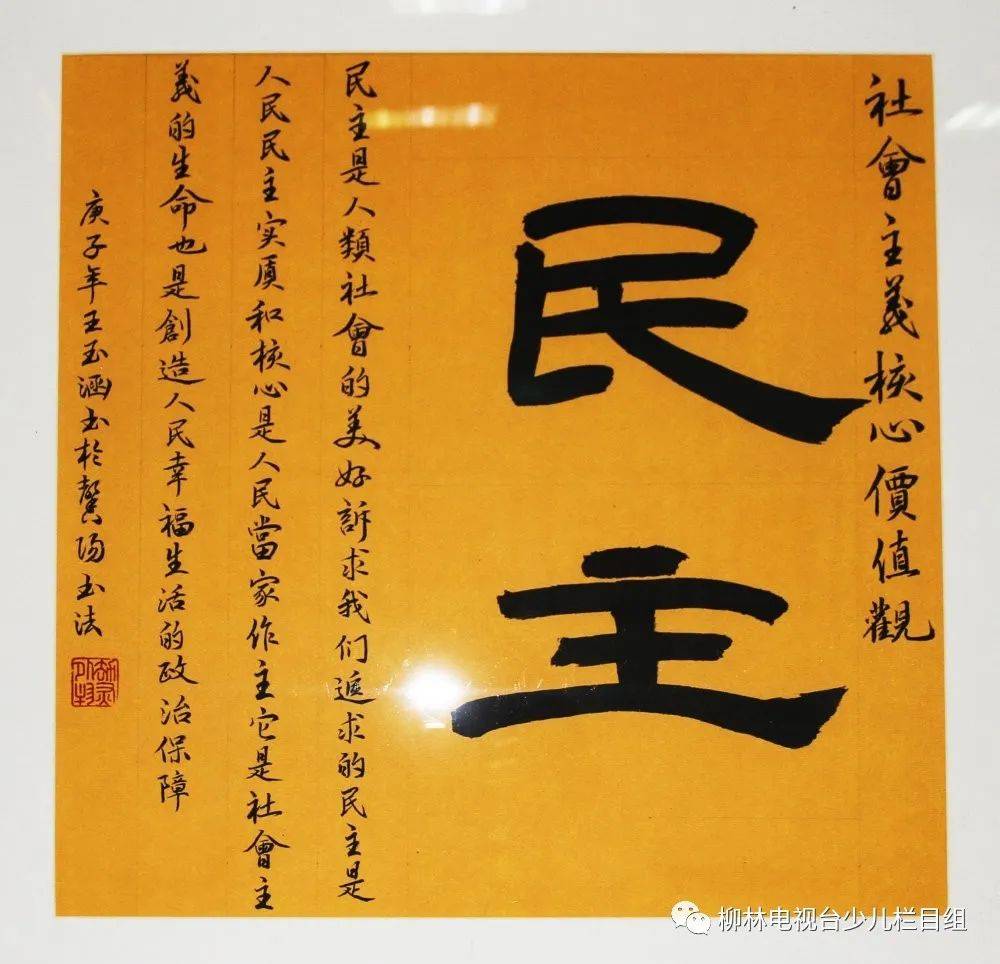 社會主義核心價值觀
民主
民主是人類社會的美好訴求我们追求的民主是
人民民主实質和核心是人民當家作主它是社會主
義的生命也是創造人民幸福生活的政治保障
庚子年王玉涵书於馨阳书法
柳林电视台少儿栏目组